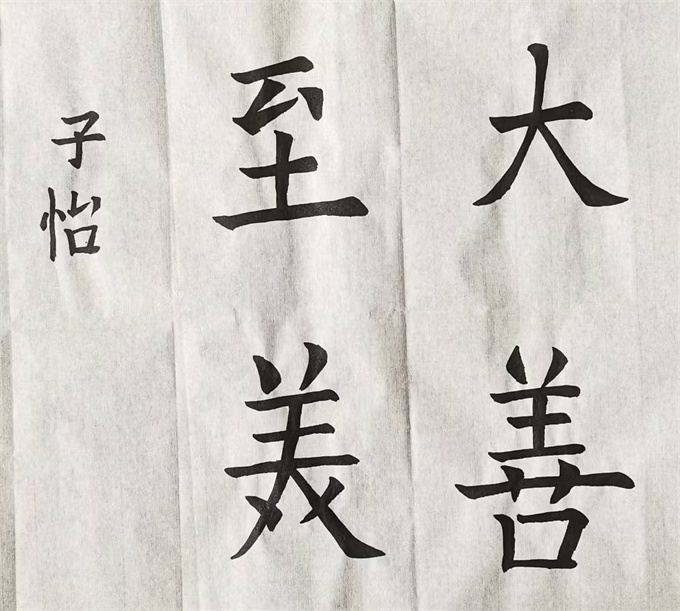 大善
至美
子怡